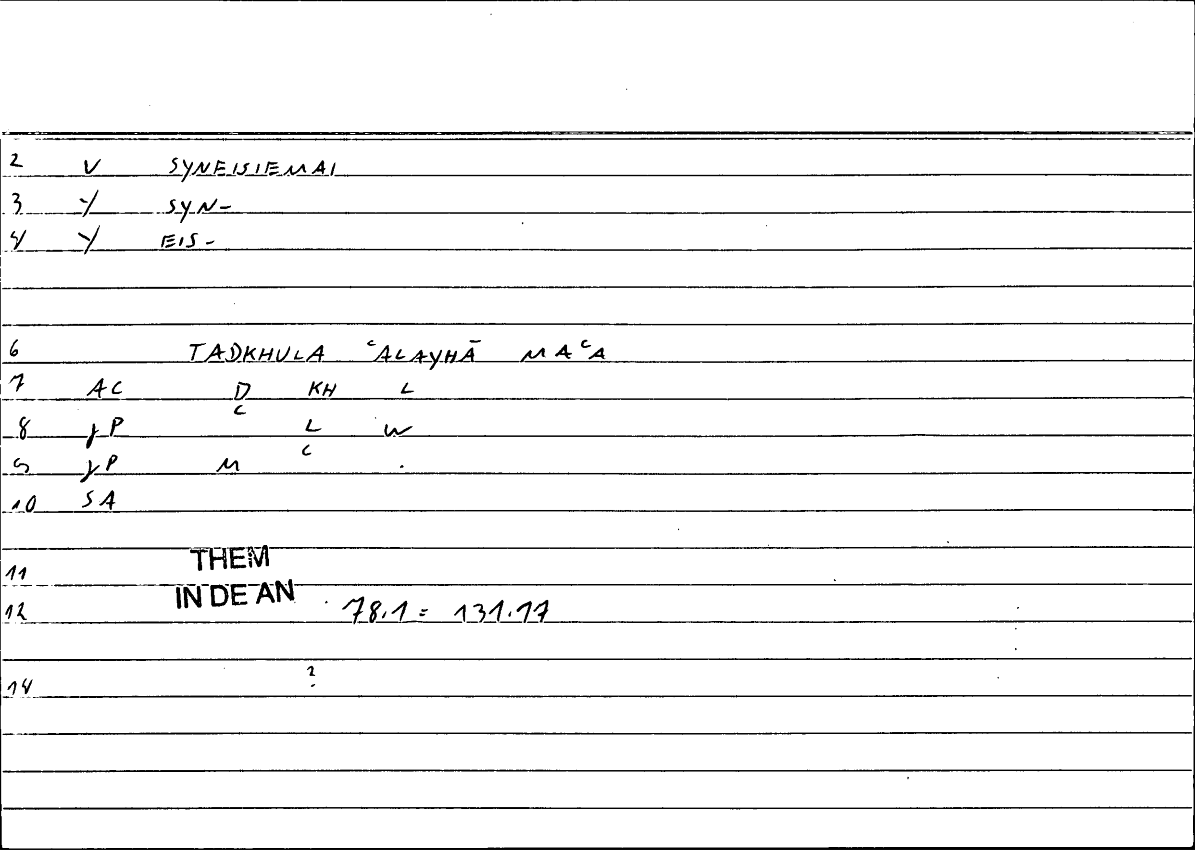 2 V SYNEISIEMAI
3 Y SYN-
4 Y EIS-
6 TADKHULA ʿALAYHĀ MAʿA
7 AC D KH L
8 γP ʿ L W
9 γP M ʿ .
10 SA
11 THEM
12 IN DE AN 78.1 = 131.17
14 ?